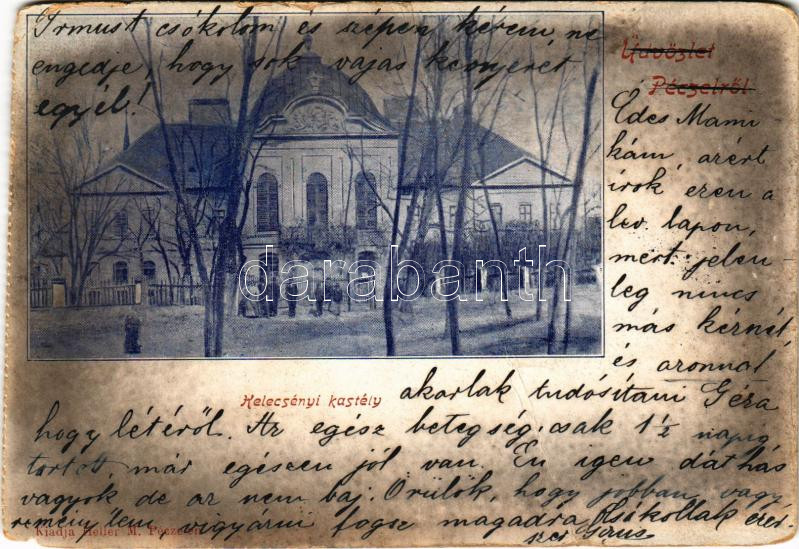 Irmust csókolom és szépen kérem, ne
engedje, hogy sok vajas kenyeret
egyél!
Üdvözlet
Péczelről
Édes Mami
kám, azért
írok ezen a
lev. lapon,
mert jelen-
leg nincs
más kérnét
és azonnal
darabanth
Kelecsényi kastély
akarlak tudósítani Géza
hogy létéről. Az egész betegség csak 1½ napig
tartott már egészen jól van. Én igen dáthás
vagyok de az nem baj. Örülök, hogy jobban vagy
reménylem vigyázni fogsz magadra Csókollak ezer-
szer
Kiadja Heller M. Péczelen